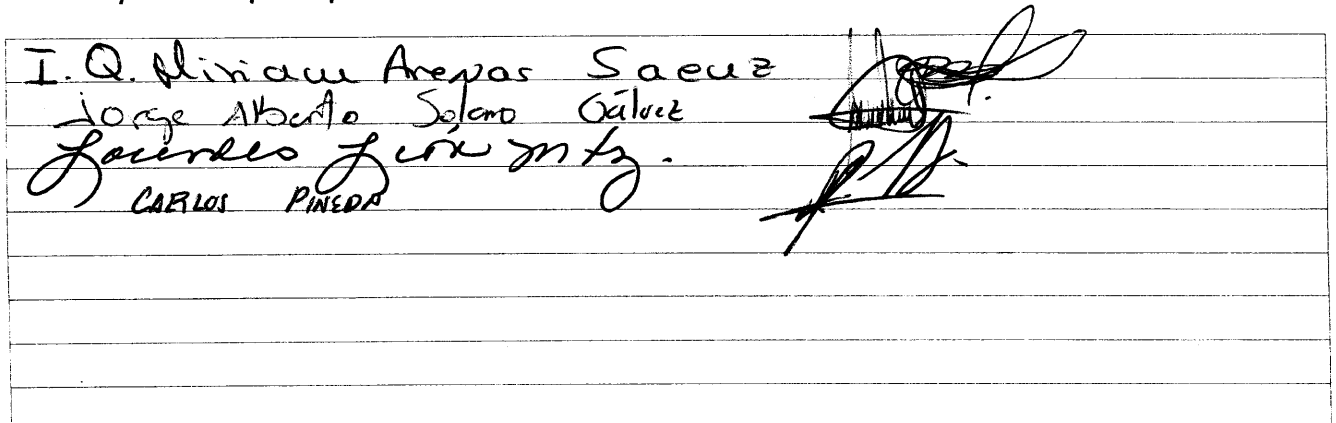 I. Q. Miriam Arenas Saenz
Jorge Alberto Solano Gálvez
Lourdes León Mtz.
CARLOS PINEDA